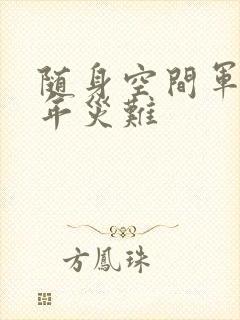 随身空間軍
年災難
方鳳珠